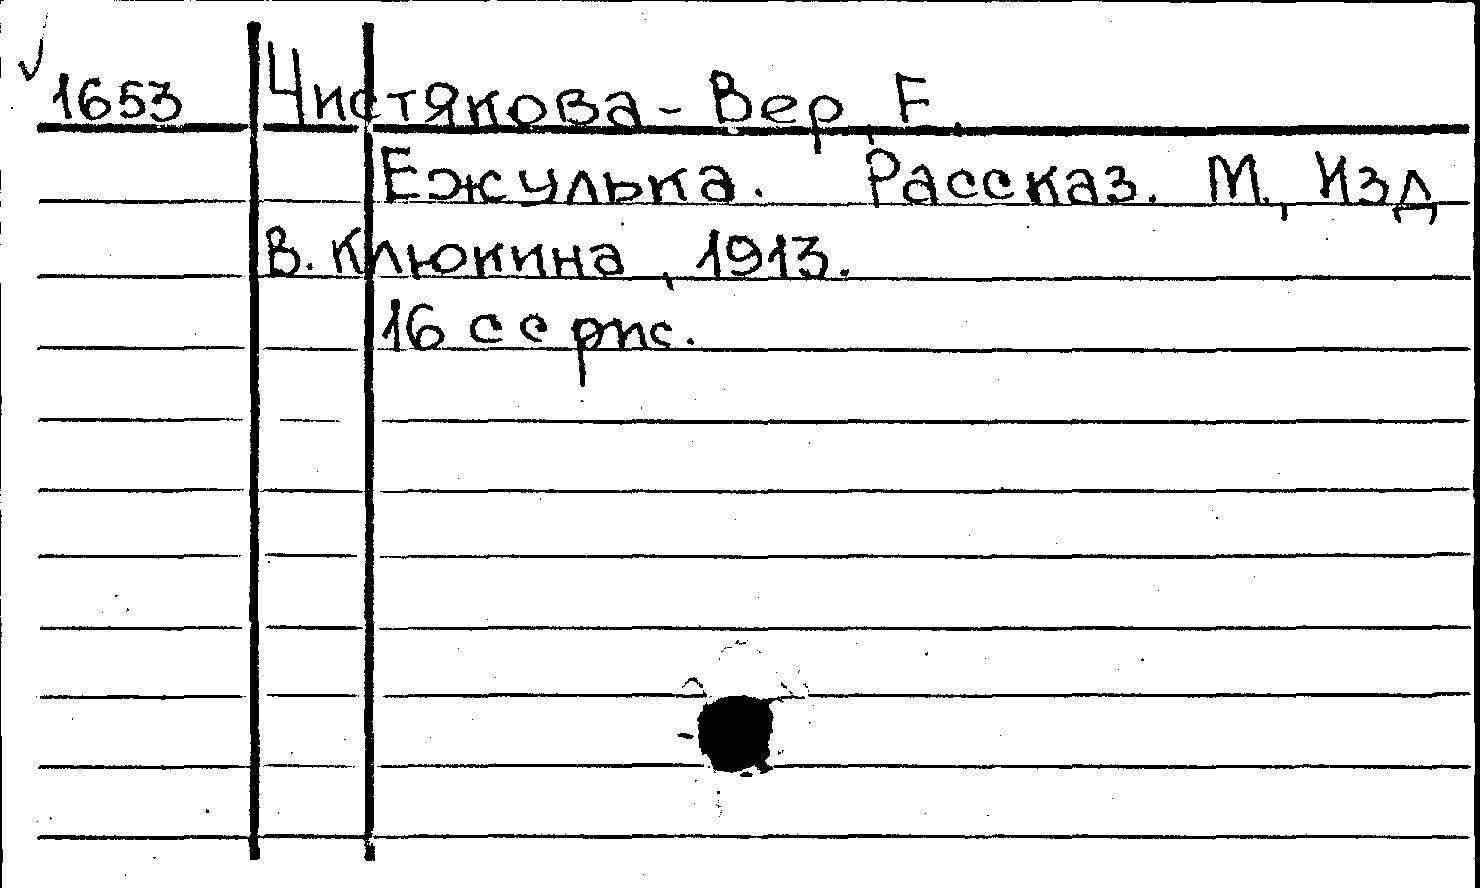 1653 Чистякова-Вер, Е.
Ежулька. Рассказ. М., Изд
В. Клюкина, 1913.
16 с с рис.